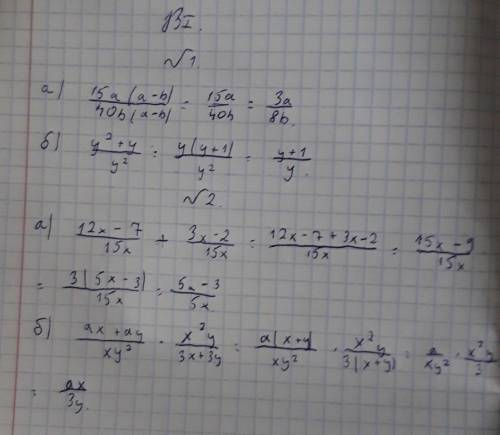 ВI.
√1.
а) 15a(a-b)/40b(a-b) = 15a/40b = 3a/8b.
б) y²+y/y² = y(y+1)/y² = y+1/y.
√2.
а) 12x-7/15x + 3x-2/15x = 12x-7+3x-2/15x = 15x-9/15x
= 3(5x-3)/15x = 5x-3/5x.
б) ax+ay/xy² · x²y/3x+3y = a(x+y)/xy² · x²y/3(x+y) = a/xy² · x²y/3
= ax/3y.